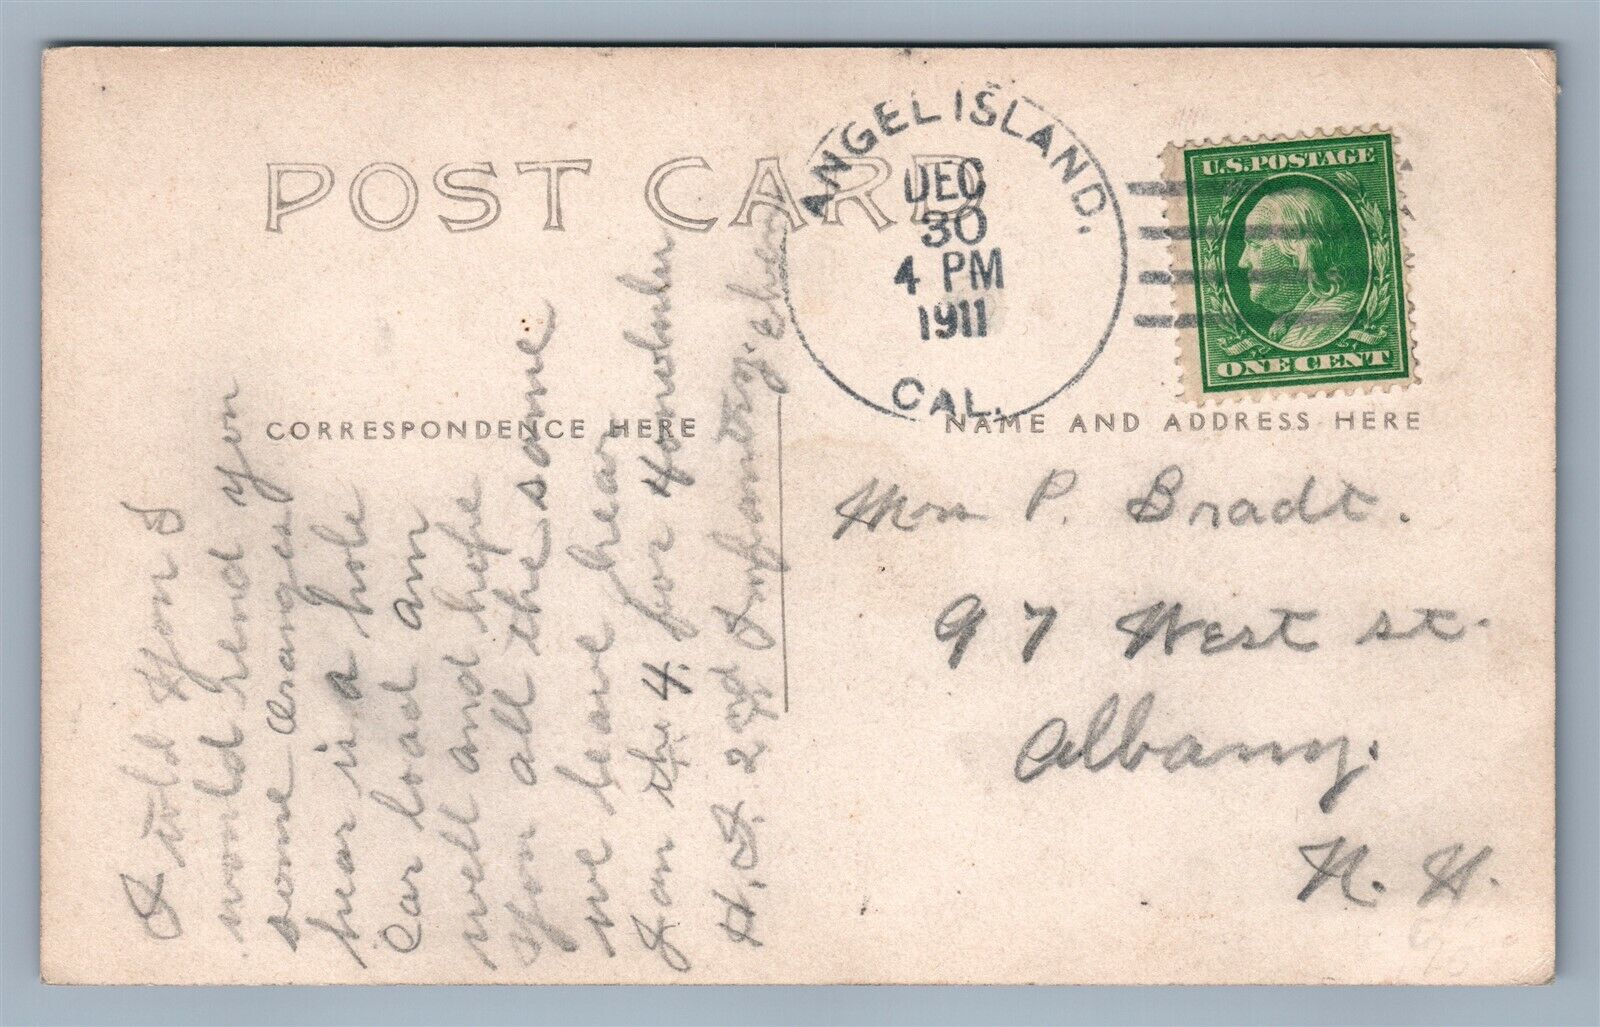 POST CARD
CORRESPONDENCE HERE
NAME AND ADDRESS HERE
ANGEL ISLAND.
DEC
30
4 PM
1911
CAL.
U.S. POSTAGE
ONE CENT
I told you I
would send you
some oranges
hear is a hole
car load am
well and hope
you all the same
we leave hear
Jan the 4. for Honolulu
H. I. 2nd Infantry.
P. Bradt.
97 West st.
Albany.
N. Y.